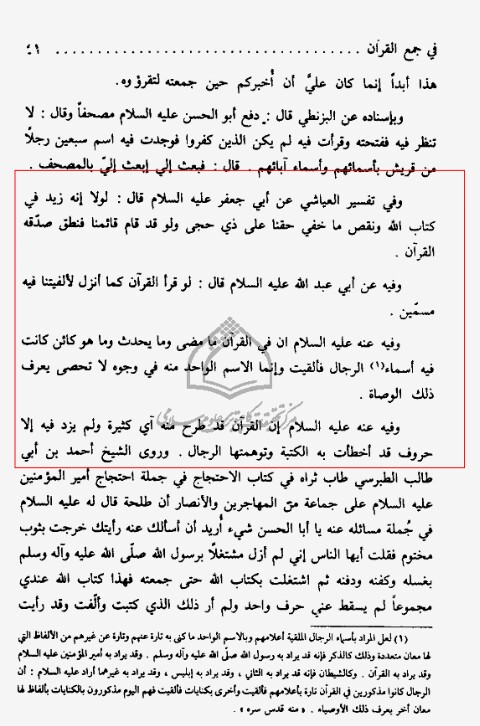 في جمع القرآن ........................................ ٤١
هذا أبداً إنما كان عليَّ أن أُخبركم حين جمعته لتقرؤوه.
وبإسناده عن البزنطي قال : دفع أبو الحسن عليه السلام مصحفاً وقال : لا
تنظر فيه ففتحته وقرأت فيه لم يكن الذين كفروا فوجدت فيه اسم سبعين رجلاً
من قريش بأسمائهم وأسماء آبائهم . قال : فبعث إلي إبعث إليّ بالمصحف .
وفي تفسير العياشي عن أبي جعفر عليه السلام قال : لولا إنه زيد في
كتاب الله ونقص ما خفي حقنا على ذي حجى ولو قد قام قائمنا فنطق صدّقه
القرآن .
وفيه عن أبي عبد الله عليه السلام قال : لو قرأ القرآن كما أنزل لألفيتنا فيه
مسمّين .
وفيه عنه عليه السلام ان في القرآن ما مضى وما يحدث وما هو كائن كانت
فيه أسماء(١) الرجال فألقيت وإنما الاسم الواحد منه في وجوه لا تحصى يعرف
ذلك الوصاة .
وفيه عنه عليه السلام إن القرآن قد طرح منه آي كثيرة ولم يزد فيه إلا
حروف قد أخطأت به الكتبة وتوهمتها الرجال . وروى الشيخ أحمد بن أبي
طالب الطبرسي طاب ثراه في كتاب الاحتجاج في جملة احتجاج أمير المؤمنين
عليه السلام على جماعة من المهاجرين والأنصار أن طلحة قال له عليه السلام
في جُملة مسائله عنه يا أبا الحسن شيء أُريد أن أسألك عنه رأيتك خرجت بثوب
مختوم فقلت أيها الناس إني لم أزل مشتغلاً برسول الله صلّى الله عليه وآله وسلم
بغسله وكفنه ودفنه ثم اشتغلت بكتاب الله حتى جمعته فهذا كتاب الله عندي
مجموعاً لم يسقط عني حرف واحد ولم أر ذلك الذي كتبت وألّفت وقد رأيت
(١) لعل المراد بأسماء الرجال الملقية أعلامهم وبالاسم الواحد ما كنى به تارة عنهم وتارة عن غيرهم من الألفاظ التي
لها معان متعددة وذلك كالذكر فإنه قد يراد به رسول الله صلّى الله عليه وآله وسلم . وقد يراد به أمير المؤمنين عليه السلام
وقد يراد به القرآن . وكالشيطان فإنه قد يراد به الثاني ، وقد يراد به إبليس ، وقد يراد به غيرهما أراد عليه السلام : أن
الرجال كانوا مذكورين في القرآن تارة بأعلامهم فألقيت وأخرى بكنايات فألقيت فهم اليوم مذكورون بالكنايات بألفاظ لها
معان أخر يعرف ذلك الأوصياء . « منه قدس سره » .
مركز تحقيقات كامپيوترى علوم اسلامى